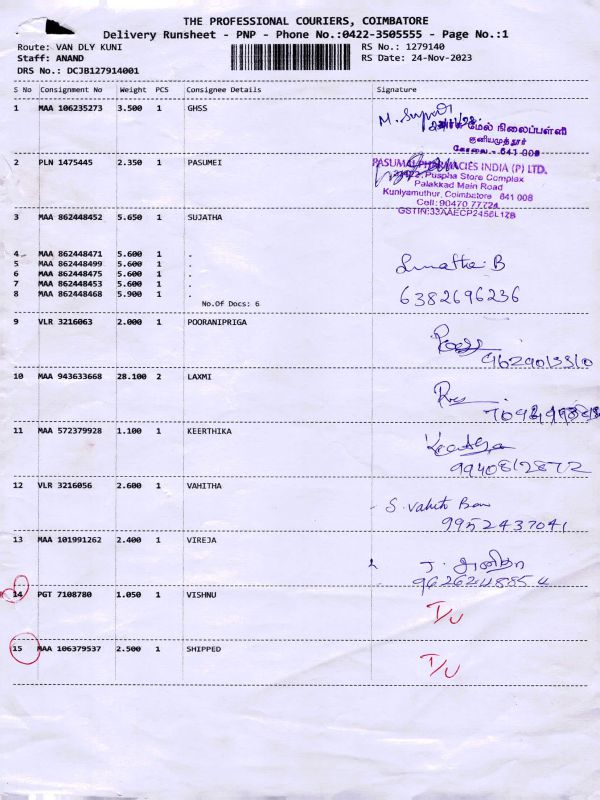 THE PROFESSIONAL COURIERS, COIMBATORE
Delivery Runsheet - PNP - Phone No.:0422-3505555 - Page No.:1
Route: VAN DLY KUNI RS No.: 1279140
Staff: ANAND RS Date: 24-Nov-2023
DRS No.: DCJB127914001
S No Consignment No Weight PCS Consignee Details Signature
1 MAA 106235273 3.500 1 GHSS
மேல் நிலைப்பள்ளி
குனியமுத்தூர்
கோவை - 641 008
2 PLN 1475445 2.350 1 PASUMEI
PHARMACIES INDIA (P) LTD,
Puspha Store Complex
Palakkad Main Road
Kuniyamuthur, Coimbatore 641 008
Cell: 90470 77724
GSTIN:33AAECP2456L1ZB
3 MAA 862448452 5.650 1 SUJATHA
4 MAA 862448471 5.600 1 .
5 MAA 862448499 5.600 1 .
6 MAA 862448475 5.600 1 .
7 MAA 862448453 5.600 1 .
8 MAA 862448468 5.900 1 .
No.Of Docs: 6
6382696236
9 VLR 3216063 2.000 1 POORANIPRIGA
10 MAA 943633668 28.100 2 LAXMI
11 MAA 572379928 1.100 1 KEERTHIKA
9940812872
12 VLR 3216056 2.600 1 VAHITHA
S. Vahith
9952437041
13 MAA 101991262 2.400 1 VIREJA
14 PGT 7108780 1.050 1 VISHNU
I/U
15 MAA 106379537 2.500 1 SHIPPED
I/U